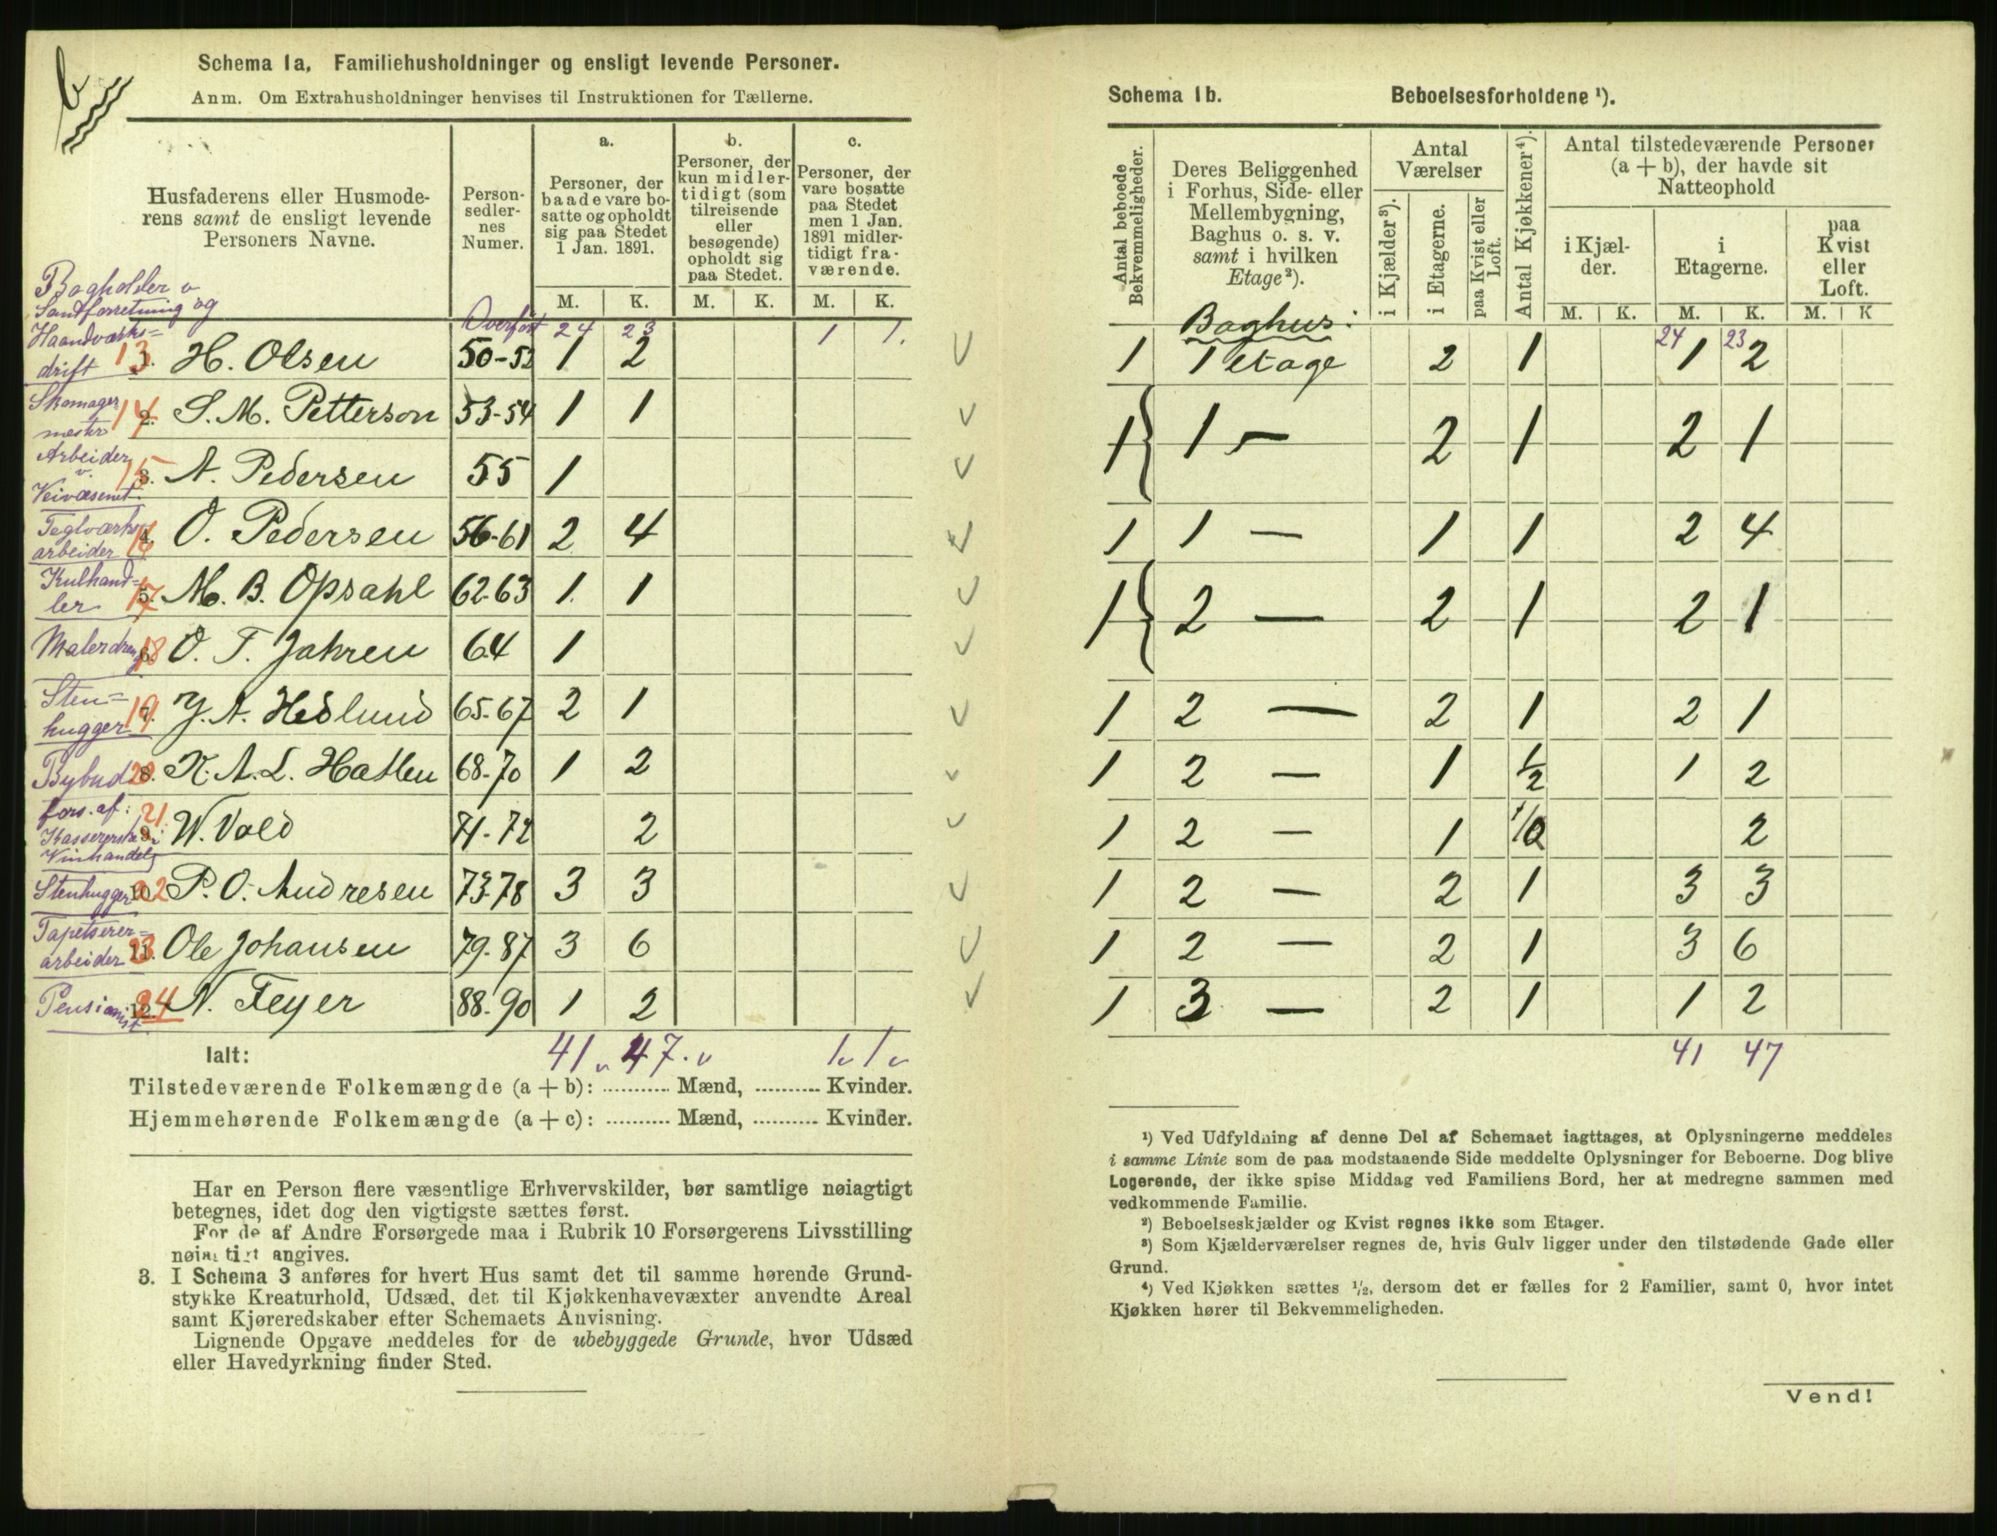 Schema 1a. Familiehusholdninger og ensligt levende Personer.
Anm. Om Extrahusholdninger henvises til Instruktionen for Tællerne.
Husfaderens eller Husmode-
rens samt de ensligt levende
Personers Navne.
Person-
sedler-
nes
Numer.
a.
Personer, der
baade vare bo-
satte og opholdt
sig paa Stedet
1 Jan. 1891.
b.
Personer, der
kun midler-
tidigt (som
tilreisende
eller
besøgende)
opholdt sig
paa Stedet.
c.
Personer, der
vare bosatte
paa Stedet
men 1 Jan.
1891 midler-
tidigt fra-
værende.
M. K. M. K. M. K.
Overført 24 23 1 1.
Bogholder v
og
Haandværks=
drift 13 1. H. Olsen 50-52 1 2
Skomager
mester 14 2. S. M. Petterson 53-54 1 1
Arbeider
v.
Veivæsenet. 15 3. A. Pedersen 55 1
Teglværks
arbeider 16 4. O. Pedersen 56-61 2 4
Kulhand=
ler 17 5. M. B. Opsahl 62-63 1 1
Malerdreng 18 6. O. T. Jahren 64 1
Sten=
hugger 19 7. J. A. Hedlund 65-67 2 1
Bybud 20 8. K. A. L. Hatlen 68-70 1 2
fors. af:
Vinhandel 21. 9. W. Vold 71-72 2
Stenhugger 22 10. P. O. Andresen 73-78 3 3
Tapetserer=
arbeider 23 11. Ole Johansen 79-87 3 6
Pensionist. 24 12. N. Feyer 88-90 1 2
Ialt: 41 v 47. v 1 v 1 v
Tilstedeværende Folkemængde (a + b): ........... Mænd, .......... Kvinder.
Hjemmehørende Folkemængde (a + c): .......... Mænd, .......... Kvinder.
Har en Person flere væsentlige Erhvervskilder, bør samtlige nøiagtigt
betegnes, idet dog den vigtigste sættes først.
For de af Andre Forsørgede maa i Rubrik 10 Forsørgerens Livsstilling
nøiagtigt angives.
3. I Schema 3 anføres for hvert Hus samt det til samme hørende Grund-
stykke Kreaturhold, Udsæd, det til Kjøkkenhavevæxter anvendte Areal
samt Kjøreredskaber efter Schemaets Anvisning.
Lignende Opgave meddeles for de ubebyggede Grunde, hvor Udsæd
eller Havedyrkning finder Sted.
Schema 1b. Beboelsesforholdene ¹).
Antal beboede
Bekvemmeligheder.
Deres Beliggenhed
i Forhus, Side- eller
Mellembygning,
Baghus o. s. v.
samt i hvilken
Etage²).
Antal
Værelser
i Kjælder³).
i Etagerne.
paa Kvist eller
Loft.
Antal Kjøkkener⁴).
Antal tilstedeværende Personer
(a + b), der havde sit
Natteophold
i Kjæl-
der.
i
Etagerne.
paa
Kvist
eller
Loft.
M. K. M. K. M. K
Baghus: 24 23
1 1 etage 2 1 1 2
1 1 — 2 1 2 1
1 1 — 1 1 2 4
1 2 — 2 1 2 1
1 2 — 2 1 2 1
1 2 — 1 1/2 1 2
1 2 — 1 1/2 2
1 2 — 2 1 3 3
1 2 — 2 1 3 6
1 3 — 2 1 1 2
41 47
¹) Ved Udfyldning af denne Del af Schemaet iagttages, at Oplysningerne meddeles
i samme Linie som de paa modstaaende Side meddelte Oplysninger for Beboerne. Dog blive
Logerende, der ikke spise Middag ved Familiens Bord, her at medregne sammen med
vedkommende Familie.
²) Beboelseskjælder og Kvist regnes ikke som Etager.
³) Som Kjælderværelser regnes de, hvis Gulv ligger under den tilstødende Gade eller
Grund.
⁴) Ved Kjøkken sættes ¹/₂, dersom det er fælles for 2 Familier, samt 0, hvor intet
Kjøkken hører til Bekvemmeligheden.
Vend!